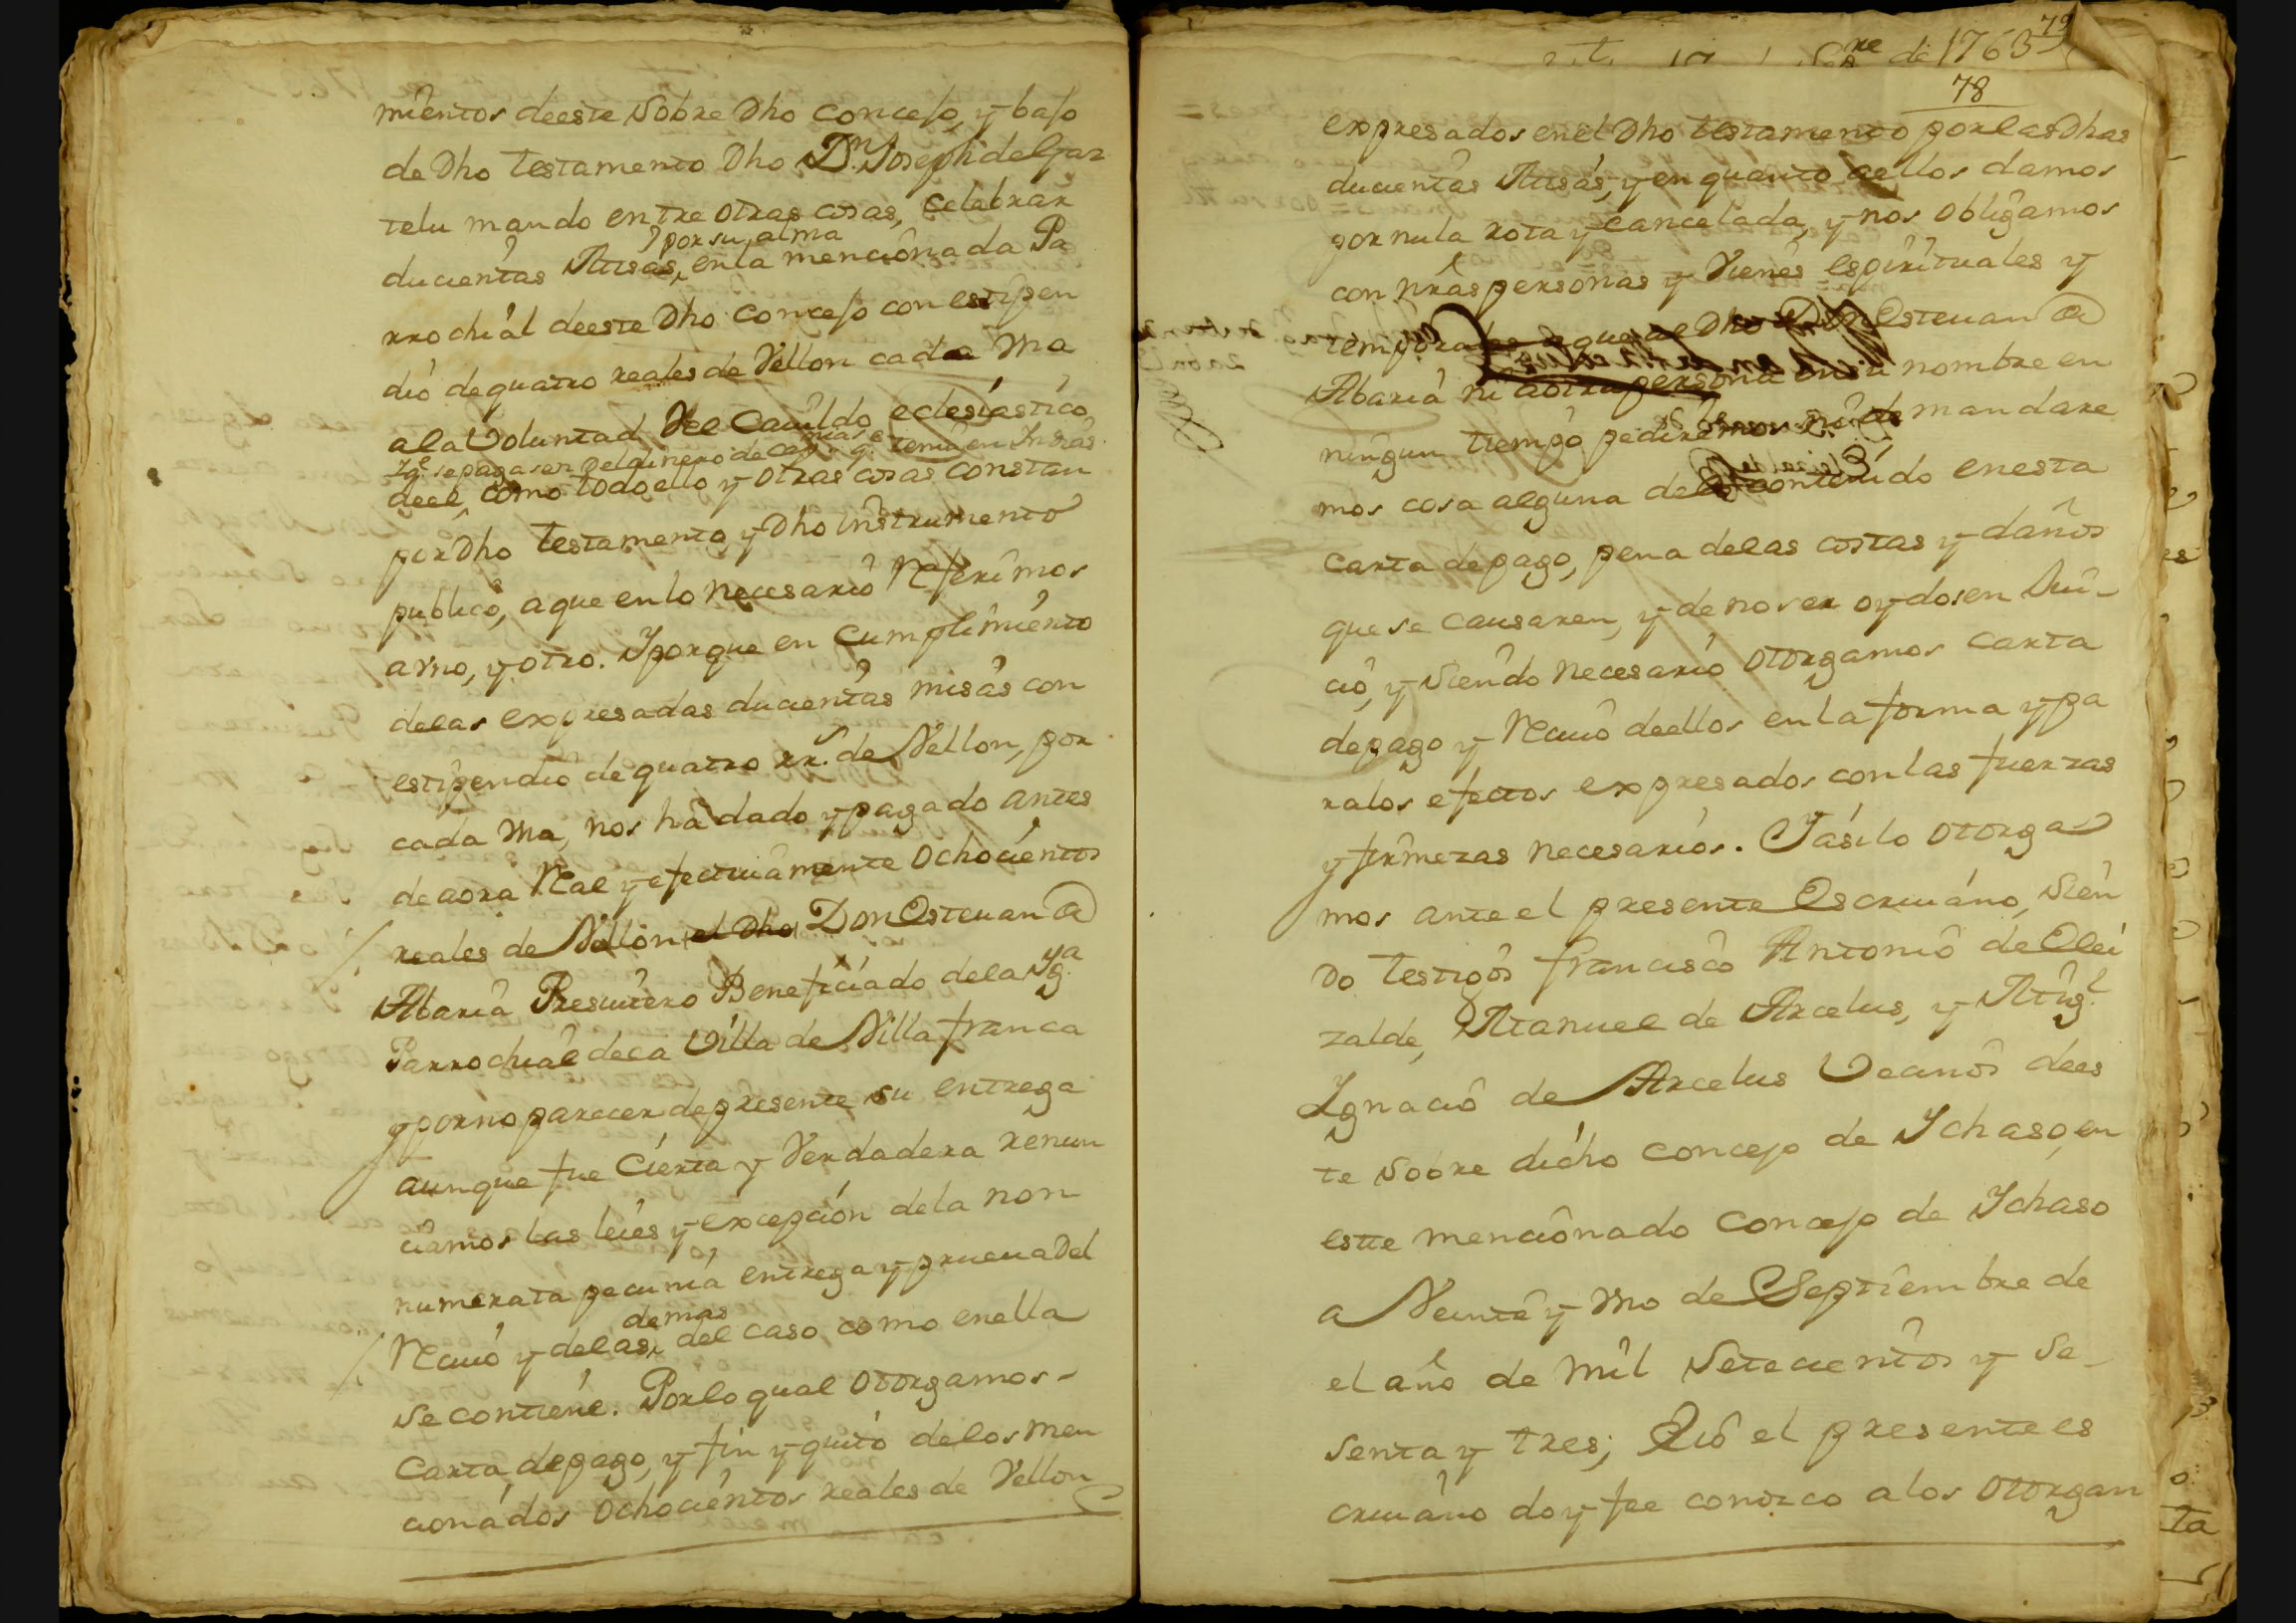 mientos deeste Sobre Dho concejo, y bajo
de Dho testamento Dho Dn. Joseph de Gaz
telu mando entre otras cosas, celebrar
por su alma
ducientas Misas, en la mencionada Pa
rrochial deeste Dho concejo con estipen
dio de quatro reales de Vellon cada Vna
a la Voluntad del Cauildo eclesiastico
se pagasen del dinero de
tenia en Indias
deel, como todo ello y otras cosas constan
por Dho testamento y Dho instrumento
publico, a que en lo necesario Referimos
a Vno, y otro. Y porque en cumplimiento
delas expresadas ducientas misas con
estipendio de quatro rr.s de Vellon, por
cada Vna, nos ha dado y pagado antes
de aora Real y efectiuamente ochocientos
reales de Vellon el Dho Don Esteuan de
Abaria Presuitero Beneficiado dela Yga.
Parrochial dela Villa de Villafranca
y por no parecer de presente su entrega
aunque fue Cierta y Verdadera renun
ciamos las leies y excepcion dela non
numerata pecunia entrega y prueua del
demas
Reciuo y delas del caso como en ella
se contiene. Por lo qual otorgamos
Carta de pago, y fin y quito delos men
cionados ochocientos reales de Vellon
re de 1763
79
78
expresados en el Dho testamento por las Dhas
ducientas Misas, y en quanto a ellos damos
por nula rota y cancelada, y nos obligamos
con nras personas y Vienes espirituales y
temporales a que al Dho Don Esteuan de
Abaria ni a otra persona en su nombre en
ningun tiempo pediremos ni de mandare
mos cosa alguna delo contenido en esta
carta de pago, pena delas costas y daños
que se causaren, y de no ser oydos en Jui-
cio, y Siendo necesario otorgamos carta
de pago y Reciuo deellos en la forma y pa
ra los efectos expresados con las fuerzas
y firmezas necesarios. Y asi lo otorga
mos ante el presente Escriuano, Sien
do testigos francisco Antonio de Elei
zalde, Manuel de Arcelus, y Migl.
Ygnacio de Arcelus Vecinos dees
te Sobre dicho concejo de Ychaso, en
este mencionado concejo de Ychaso
a Veinte y Vno de Septiembre de
el año de mil Setecientos y Se-
senta y tres; E Yo el presente es
criuano doy fee conozco a los otorgan